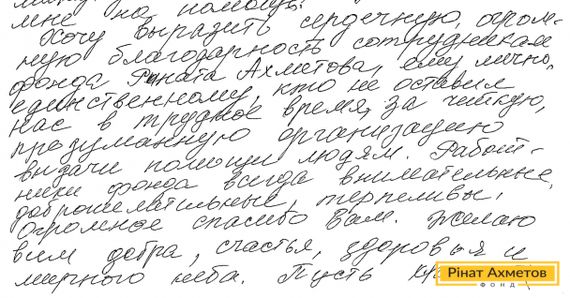 мне на помощь.
Хочу выразить сердечную, огром-
ную благодарность сотрудникам
фонда Рината Ахметова, ему лично,
единственному, кто не оставил
нас в трудное время, за чёткую,
продуманную организацию
выдачи помощи людям. Работ-
ники фонда всегда внимательные,
доброжелательные, терпеливы.
Огромное спасибо Вам. Желаю
вам добра, счастья, здоровья и
мирного неба. Пусть
Рінат Ахметов
ФОНД